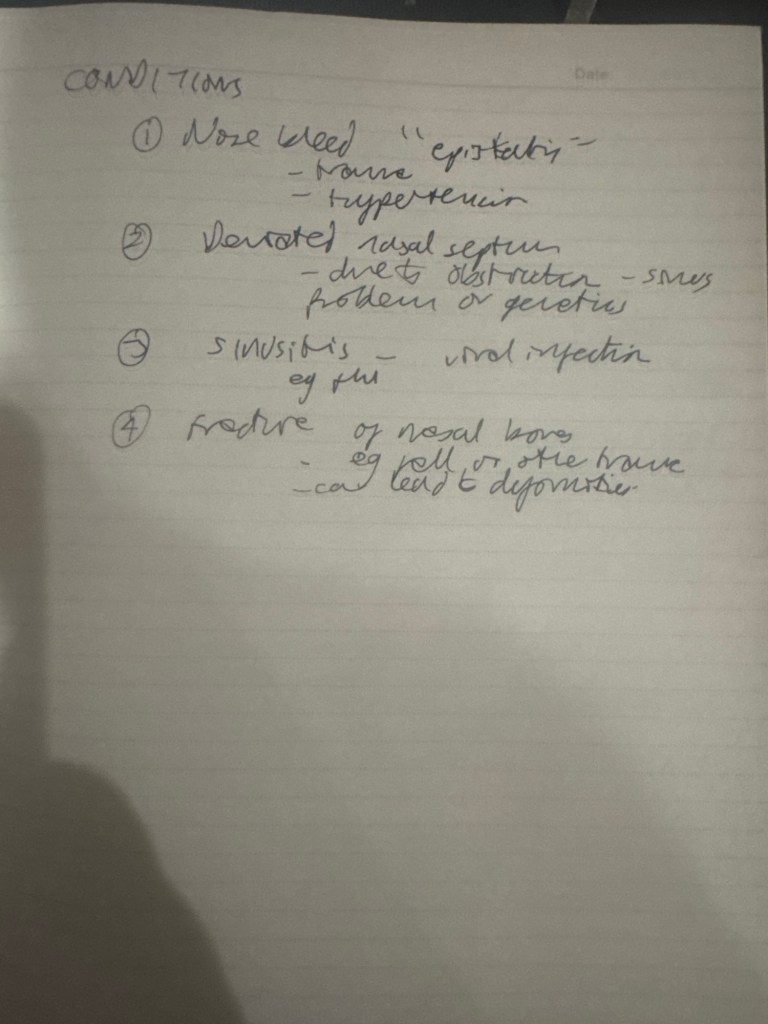 Date
CONDITIONS
① Nose bleed "epistaxis"
- trauma
- hypertension
② Deviated nasal septum
- due to obstruction - sinus
problem or genetics
③ sinusitis - viral infection
eg flu
④ fracture of nasal bones
- eg fall or other trauma
- can lead to deformities